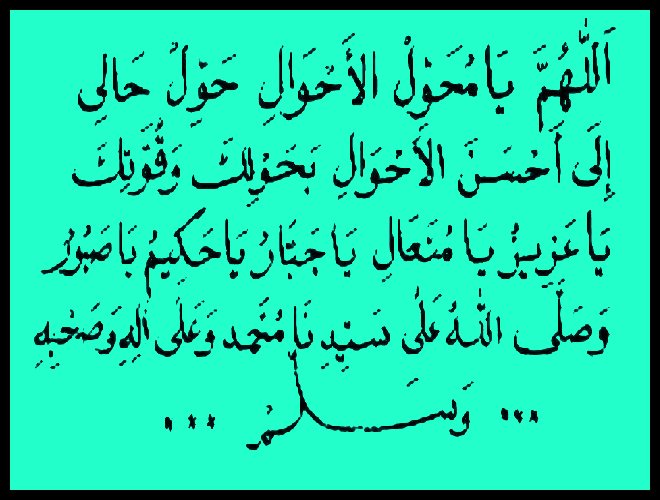 اَللّٰهُمَّ يَا مُحَوِّلَ الْأَحْوَالِ حَوِّلْ حَالِي
إِلَى أَحْسَنِ الْأَحْوَالِ بِحَوْلِكَ وَقُوَّتِكَ
يَا عَزِيزُ يَا مُتَعَالِ يَا جَبَّارُ يَا حَكِيمُ يَا صَبُورُ
وَصَلَّى اللهُ عَلَى سَيِّدِنَا مُحَمَّدٍ وَعَلَى اٰلِهِ وَصَحْبِهِ
*** وَسَلِّمْ ***